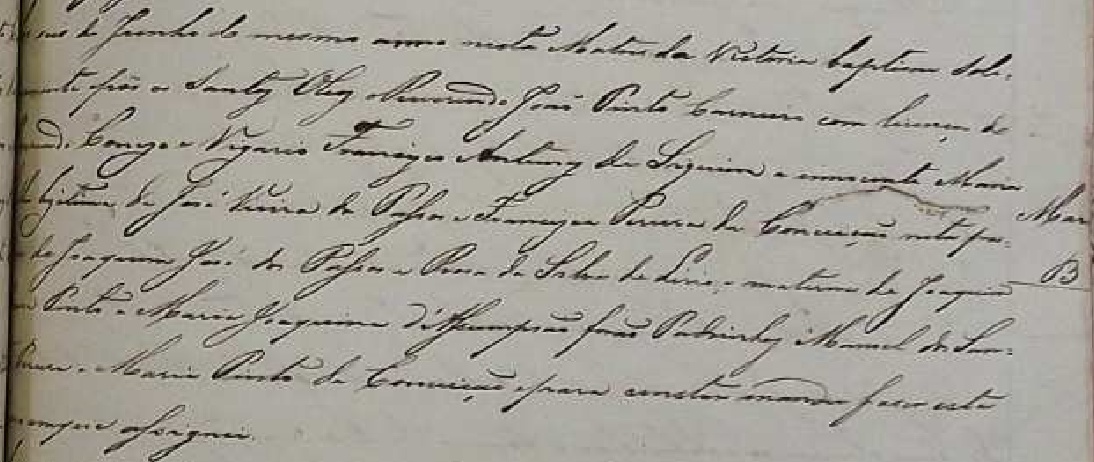 de Junho do mesmo anno nesta Matris da Victoria baptisou Sole-
mente pôs os Santos Oleos o Reverendo João Pinto Carneiro com licença do
Conego e Vigario Francisco Antunes de Siqueira a innocente Maria
legitima de José Vieira de Passos e Francisca Pereira da Conceição neta pa-
de Joaquim José dos Passos e Rosa da Silva de Lirio, e materna de Joaquim
Pinto e Maria Joaquina d'Assumpção forão Padrinhos Manoel dos San-
e Maria Pinto da Conceição e para constar mandei fazer este
em que assignei.
Mar
B